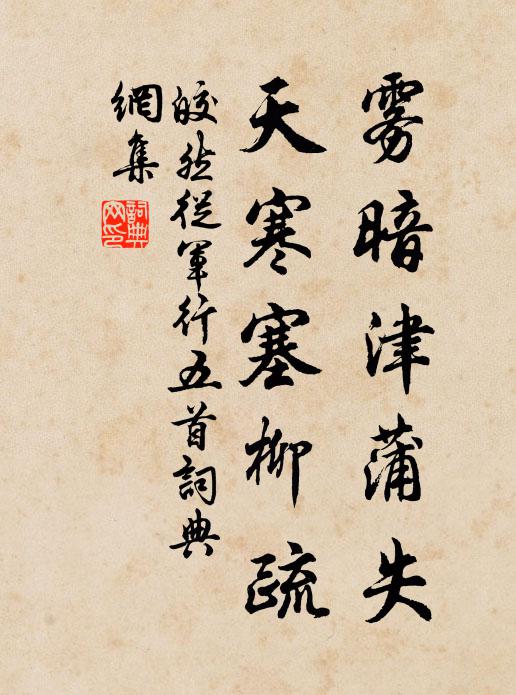 雾暗津蒲失
天寒塞柳疏
皎然從軍行五首詞典
網集
詞典
网印